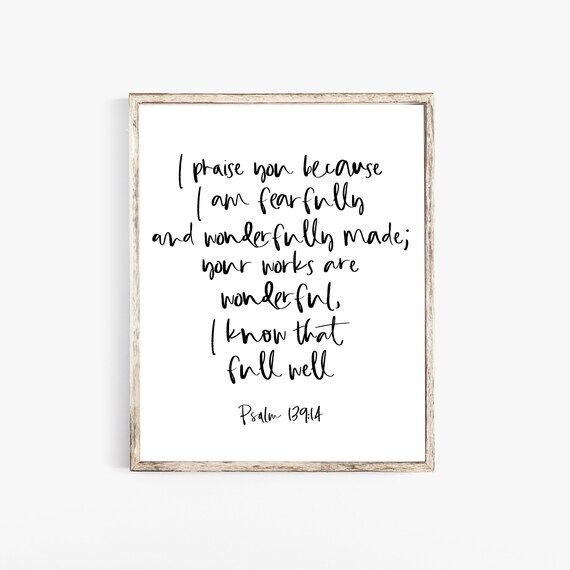 I praise you because
I am fearfully
and wonderfully made;
your works are
wonderful,
I know that
full well
Psalm 139:14